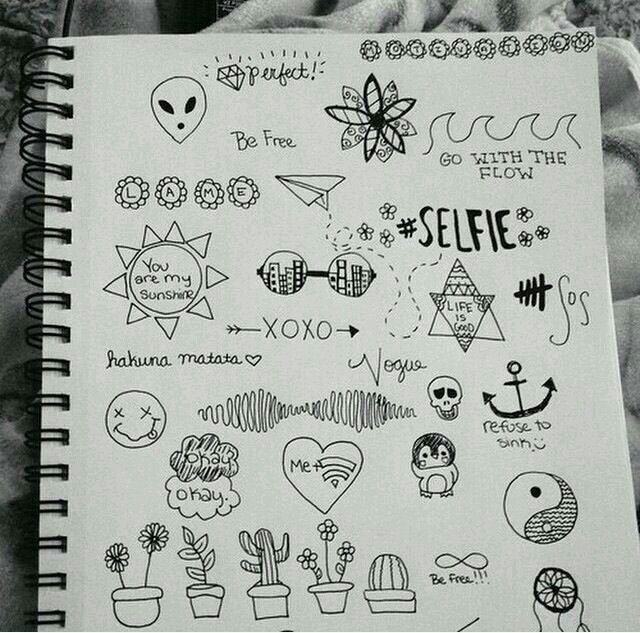 perfect!
Be Free
GO WITH THE
FLOW
LAME
#SELFIE
You
are my
sunshine
LIFE
IS
GOOD
SOS
XOXO
hakuna matata
Vogue
refuse to
sink
okay
okay.
Me+
Be Free!!!